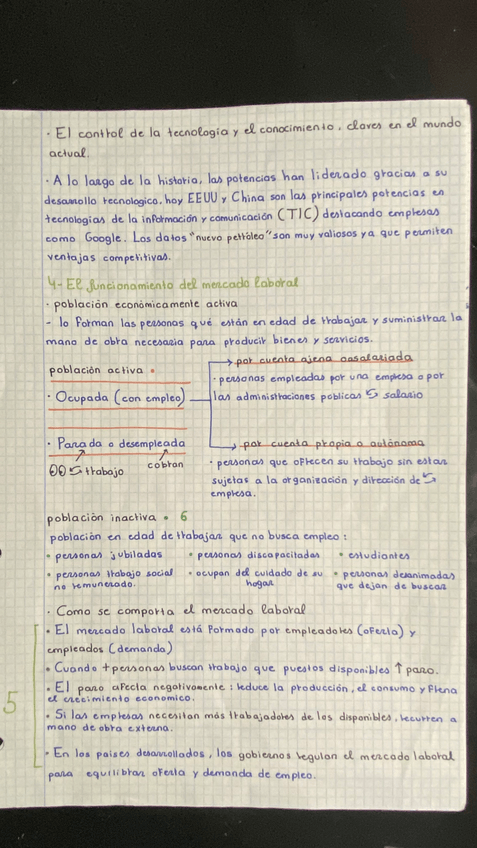 · El control de la tecnología y el conocimiento, claves en el mundo
actual.
· A lo largo de la historia, las potencias han liderado gracias a su
desarrollo tecnologico, hoy EEUU y China son las principales potencias en
tecnologías de la información y comunicación (TIC) destacando empresas
como Google. Los datos "nuevo petróleo" son muy valiosos ya que permiten
ventajas competitivas.
4- El funcionamiento del mercado laboral
· población económicamente activa
- lo forman las personas qué están en edad de trabajar y suministrar la
mano de obra necesaria para producir bienes y servicios.
población activa •
· Ocupada (con empleo)
por cuenta ajena o asalariada
· personas empleadas por una empresa o por
las administraciones publicas ↪ salario
· Parada o desempleada
trabajo
cobran
por cuenta propia o autónoma
· personas que ofrecen su trabajo sin estar
sujetas a la organización y dirección de
empresa.
población inactiva • 6
población en edad de trabajar que no busca empleo:
• personas jubiladas • personas discapacitadas • estudiantes
• personas trabajo social no remunerado. • ocupan del cuidado de su hogar • personas desanimadas que dejan de buscar
· Como se comporta el mercado laboral
• El mercado laboral está formado por empleadores (oferta) y
empleados (demanda)
• Cuando + personas buscan trabajo que puestos disponibles ↑ paro.
• El paro afecta negativamente: reduce la producción, el consumo y frena
el crecimiento economico.
5
• Si las empresas necesitan más trabajadores de los disponibles, recurren a
mano de obra externa.
• En los paises desarrollados, los gobiernos regulan el mercado laboral
para equilibrar oferta y demanda de empleo.